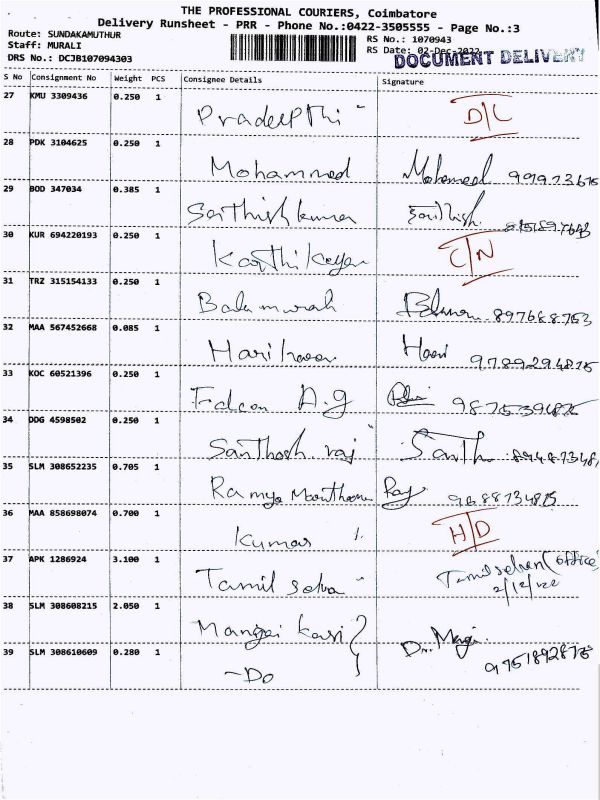 THE PROFESSIONAL COURIERS, Coimbatore
Delivery Runsheet - PRR - Phone No.:0422-3505555 - Page No.:3
Route: SUNDAKAMUTHUR RS No.: 1070943
Staff: MURALI RS Date: 02-Dec-2022
DOCUMENT DELIVERY
DRS No.: DCJB107094303
S No Consignment No Weight PCS Consignee Details Signature
27 KMU 3309436 0.250 1 Pradeepthi D/L
28 PDK 3104625 0.250 1 Mohammed Mohamed
29 BOD 347034 0.385 1 Sathishkumar
30 KUR 694220193 0.250 1 Karthikeyan C/N
31 TRZ 315154133 0.250 1 8976688753
32 MAA 567452668 0.085 1 Hariharan Hari 9789294875
33 KOC 60521396 0.250 1 Falcon A.g
34 DDG 4598502 0.250 1 Santhosh raj Santh
35 SLM 308652235 0.705 1 Ramya Ray 9688734875
36 MAA 858698074 0.700 1 Kumar H/D
37 APK 1286924 3.100 1 Tamil selva Tamilselven (office)
2/12/22
38 SLM 308608215 2.050 1 Mangai
39 SLM 308610609 0.280 1 -Do 9751892875